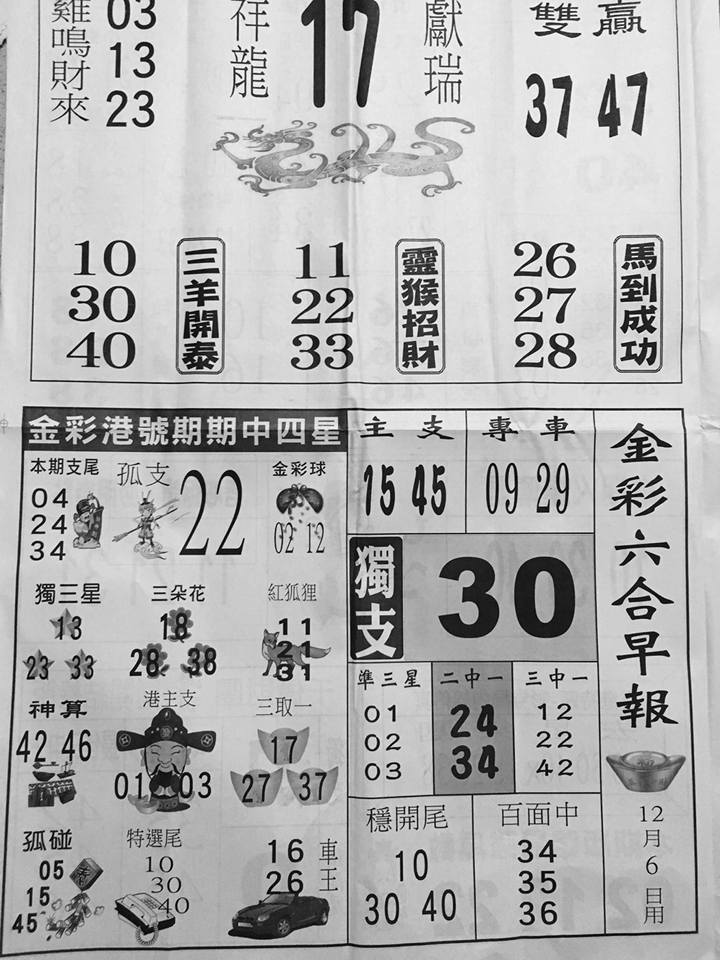 雞鳴財來
03
13
23
祥龍
17
獻瑞
雙贏
37 47
10
30
40
三羊開泰
11
22
33
靈猴招財
26
27
28
馬到成功
金彩港號期期中四星
本期支尾
04
24
34
孤支
22
金彩球
02 12
獨三星
13
23 33
三朵花
18
28 38
紅狐狸
11
21
31
神算
42 46
港主支
01 03
三取一
17
27 37
孤碰
05
15
45
特選尾
10
30
40
16
26
車王
主支
15 45
專車
09 29
獨支
30
準三星
01
02
03
二中一
24
34
三中一
12
22
42
穩開尾
10
30 40
百面中
34
35
36
金彩六合早報
12月6日用